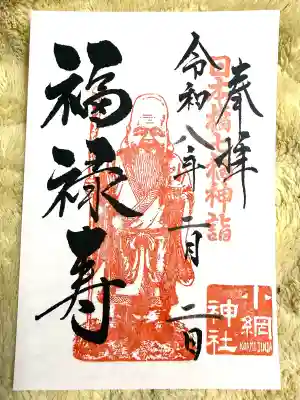 奉拝
日本橋七福神詣
令和八年一月二日
福禄寿
小網
神社
KOAMI JINJA